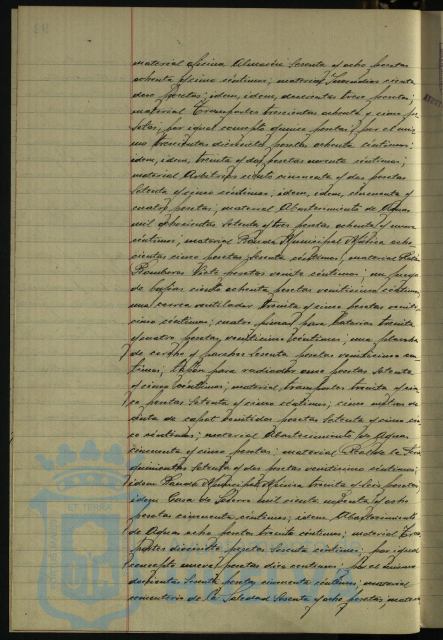 material oficina Almacén sesenta y ocho pesetas
ochenta y cinco céntimos; material Incendios ciento
doce pesetas; idem, idem, doscientas tres pesetas;
material Transportes trescientas ochenta y cinco pe-
setas, por igual concepto quince pesetas; por el mis-
mo trescientas dieciocho pesetas ochenta céntimos;
idem, idem, treinta y dos pesetas noventa céntimos;
material Arbitrios ciento cincuenta y dos pesetas
setenta y cinco céntimos; idem, idem, cincuenta y
cuatro pesetas; material Abastecimiento de Aguas
mil ochocientas setenta y tres pesetas ochenta y nueve
céntimos; material Banda Municipal Música ocho-
cientas cinco pesetas sesenta céntimos; material
Bomberos siete pesetas veinte céntimos; un juego
de bujías ciento ochenta pesetas veinticinco céntimos
una correa ventilador treinta y cinco pesetas veinti-
cinco céntimos; cuatro pinzas para baterias treinta
y cuatro pesetas veinticinco céntimos; una plancha
de corcho y parches sesenta pesetas veinticinco cén-
timos; tapón para radiador once pesetas setenta
y cinco céntimos; material transportes treinta y cin-
co pesetas setenta y cinco céntimos; cinco metros de
de capot veintidos pesetas setenta y cinco cin-
co céntimos; material Abastecimiento de Aguas
cincuenta y cinco pesetas; material
quinientas setenta y dos pesetas veinticinco céntimos;
idem Banda Municipal Música treinta y seis pesetas
idem Casa de Socorro mil ciento noventa y ocho
pesetas cincuenta céntimos; idem Abastecimiento
de Aguas ocho pesetas treinta céntimos; material Trans-
portes dieciocho pesetas sesenta céntimos; por igual
concepto nueve pesetas diez céntimos; por el mismo
doscientas sesenta pesetas cincuenta céntimos; material
cementerio de la Soledad sesenta y ocho pesetas; mater